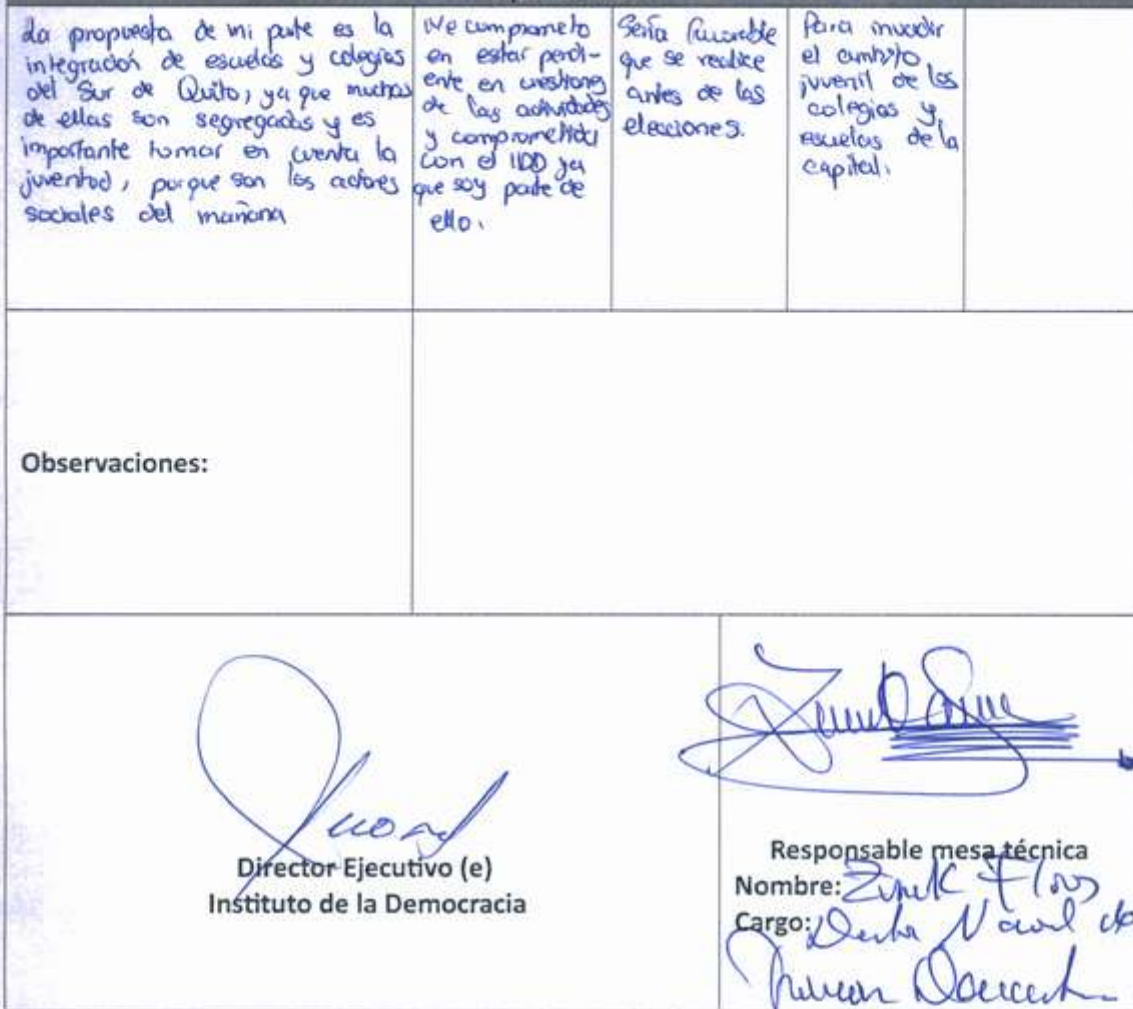 La propuesta de mi parte es la
integración de escuelas y colegios
del Sur de Quito, ya que muchas
de ellas son segregadas y es
importante tomar en cuenta la
juventud, porque son los actores
sociales del mañana
Me comprometo
en estar pendi-
ente en cuestiones
de las actividades
y comprometida
con el IDD ya
que soy parte de
ello.
Sería favorable
que se realice
antes de las
elecciones.
Para invadir
el ambito
juvenil de los
colegios y
escuelas de la
capital.
Observaciones:
Director Ejecutivo (e)
Instituto de la Democracia
Responsable mesa técnica
Nombre:
Cargo: